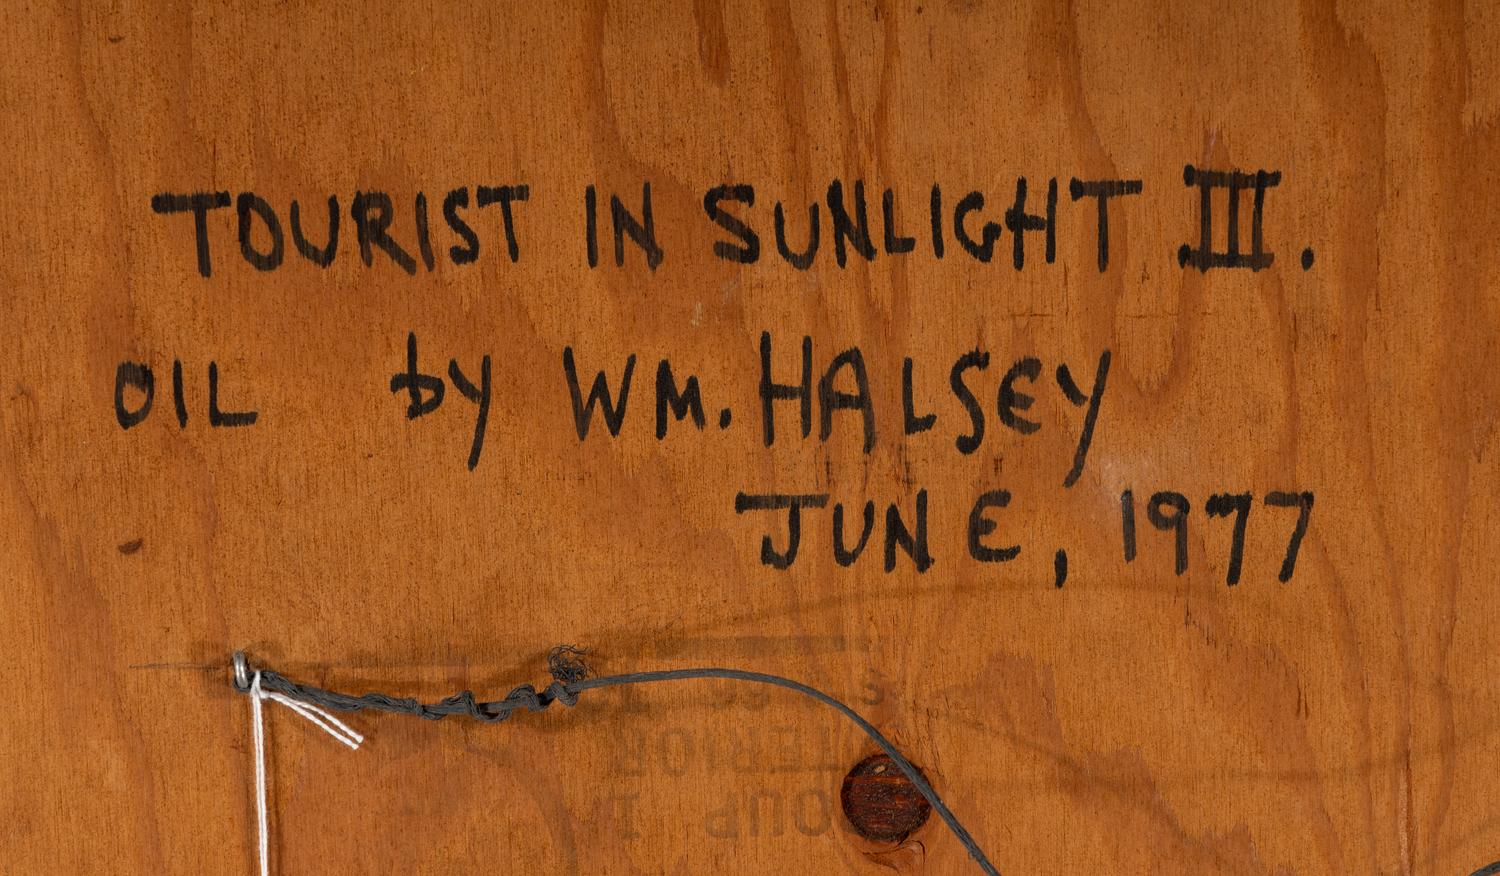 TOURIST IN SUNLIGHT III.
OIL by WM. HALSEY
JUNE, 1977